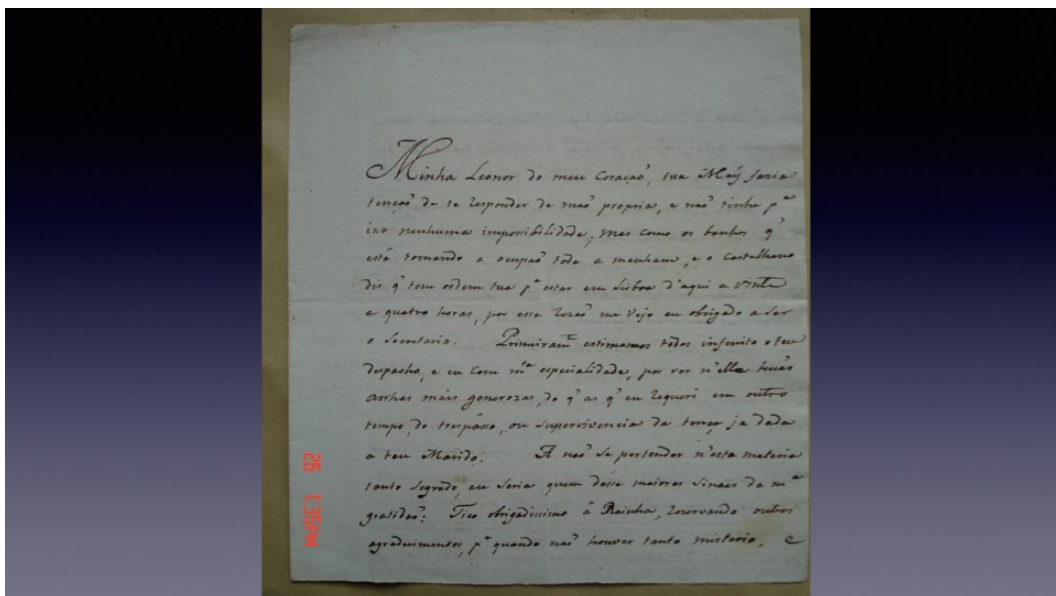 Minha Leonor do meu Coração, tua Mãy fazia
tenção de te responder de mão propria, e não tinha p.ª
isso nenhuma impossibilidade, mas como os banhos q'
está tomando a ocupão toda a menham, e o Castelhano
dis q' tem ordem tua p.ª estar em Lisboa d'aqui a vinte
e quatro horas, por essa rezão me vejo eu obrigado a ser
o Secretario. Primeiram.e estimamos todos infenito o teu
despacho, e eu com m.ta especialidade, por ver n'elle humas
arrhas mais generozas, do q' as q' eu requeri em outro
tempo, do trespasso, ou supervivencia da tença ja dada
a teu Marido. A não se pertender n'esta materia
tanto segredo, eu seria quem desse maiores sinaes da m.ª
gratidão: Fico obrigadissimo á Rainha, rezervando outros
agradecimentos, p.ª quando não houver tanto misterio, e
26 1:35PM